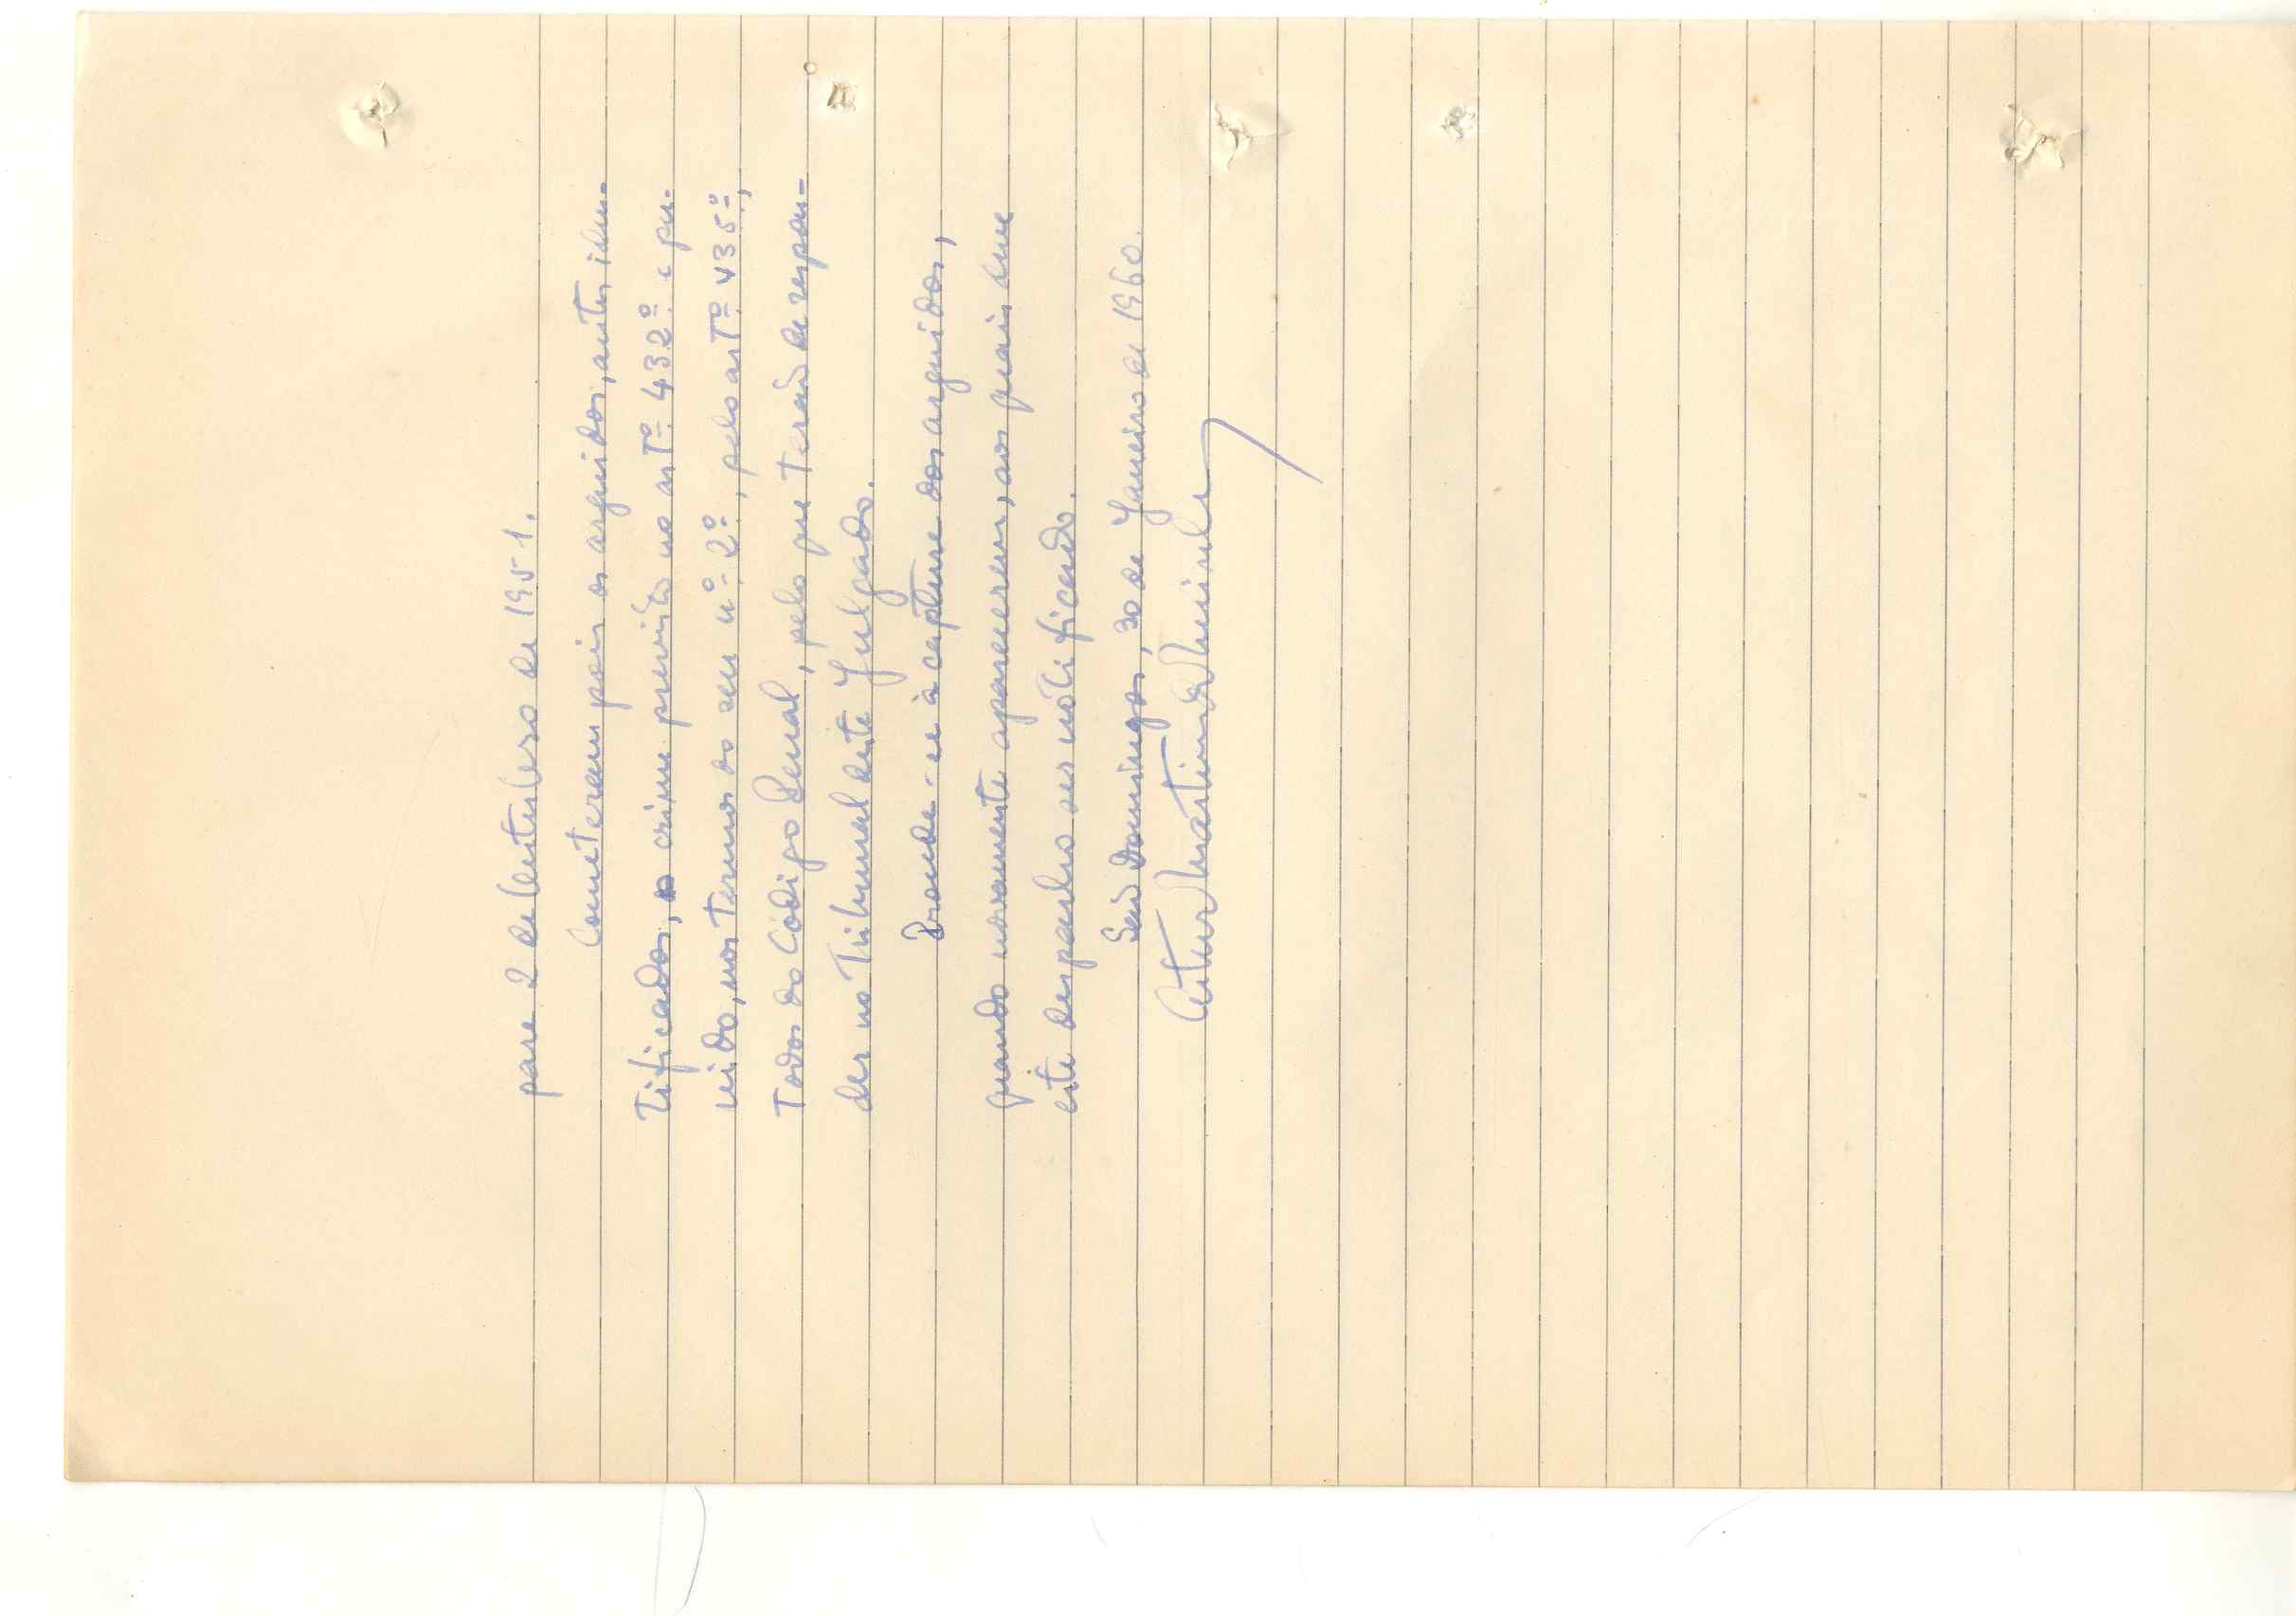 para 2 de Outubro de 1951.
Cometeram pois os arguidos, autos iden-
tificados, o crime previsto no artº 432º e pu-
nido, nos termos do seu nº 2º, pelo artº 435º,
todos do Código Penal, pelo que terão de respon-
der no Tribunal deste Julgado.
Proceda-se à captura dos arguidos,
quando novamente aparecerem, aos quais deve
este despacho ser notificado.
São Domingos, 30 de Janeiro de 1960.
Artur Martins de